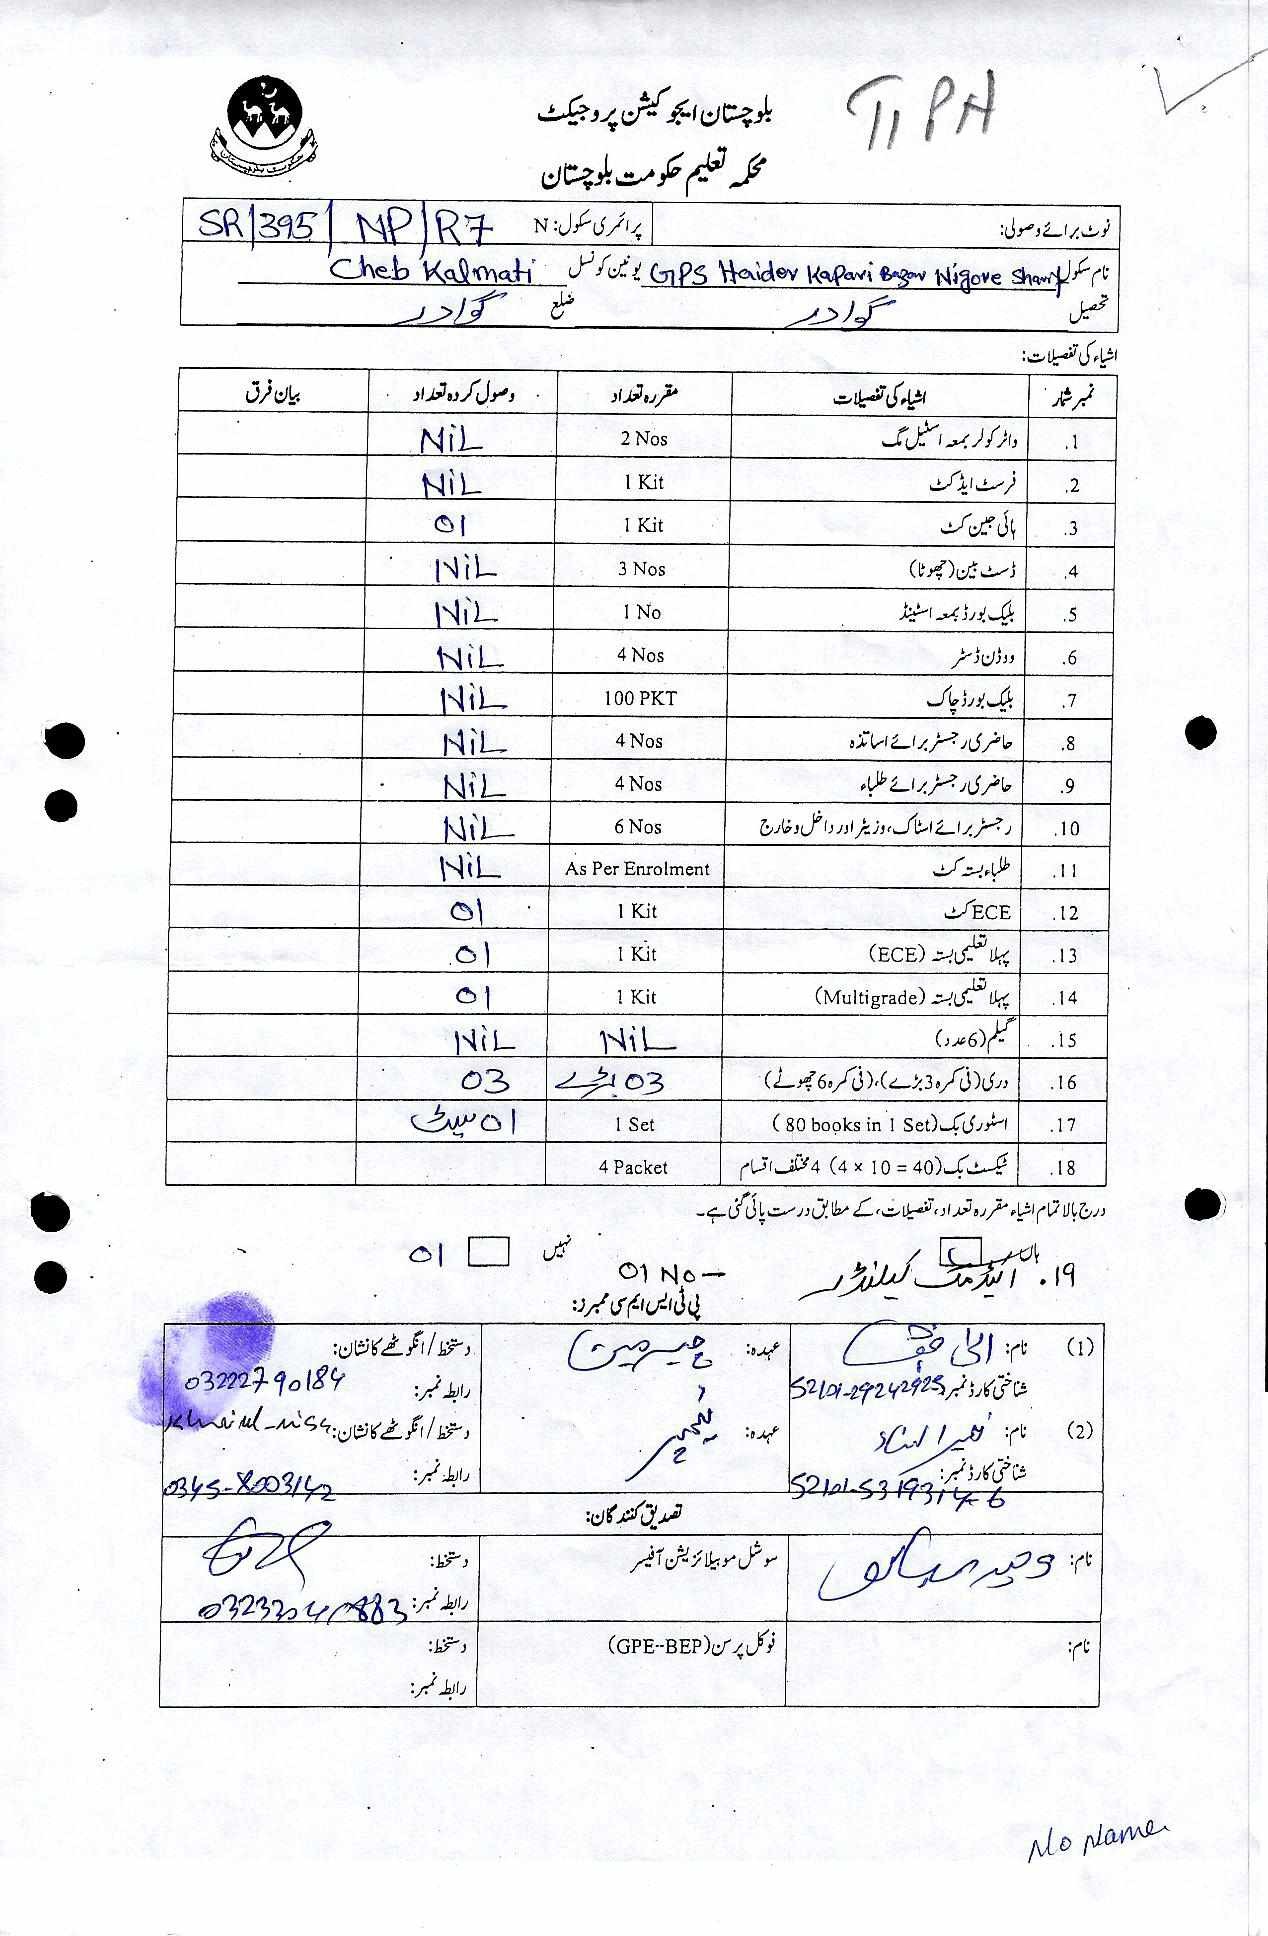 بلوچستان ایجوکیشن پروجیکٹ
محکمہ تعلیم حکومت بلوچستان
نوٹ برائے وصولی: پرائمری سکول: N SR/395/NP/R7
نام سکول GPS Haider Kapari Bazar Nigore Sharif یونین کونسل Cheb Kalmati
تحصیل گوادر ضلع گوادر
اشیاء کی تفصیلات:
نمبر شمار اشیاء کی تفصیلات مقررہ تعداد وصول کردہ تعداد بیان فرق
1. واٹر کولر بمعہ اسٹیل مگ 2 Nos NiL
2. فرسٹ ایڈ کٹ 1 Kit NiL
3. ہائی جین کٹ 1 Kit 01
4. ڈسٹ بین (چھوٹا) 3 Nos NiL
5. بلیک بورڈ بمعہ اسٹینڈ 1 No NiL
6. ووڈن ڈسٹر 4 Nos NiL
7. بلیک بورڈ چاک 100 PKT NiL
8. حاضری رجسٹر برائے اساتذہ 4 Nos NiL
9. حاضری رجسٹر برائے طلباء 4 Nos NiL
10. رجسٹر برائے اسٹاک، وزیٹر اور داخل و خارج 6 Nos NiL
11. طلباء بستہ کٹ As Per Enrolment NiL
12. ECE کٹ 1 Kit 01
13. پہلا تعلیمی بستہ (ECE) 1 Kit 01
14. پہلا تعلیمی بستہ (Multigrade) 1 Kit 01
15. گیلم (6 عدد) NiL NiL
16. دری (فی کمرہ 3 بڑے)، (فی کمرہ 6 چھوٹے) 03 بڑے 03
17. اسٹوری بک (80 books in 1 Set) 1 Set 01 سیٹ
18. ٹیکسٹ بک (4 × 10 = 40) 4 مختلف اقسام 4 Packet
درج بالا تمام اشیاء مقررہ تعداد، تفصیلات، کے مطابق درست پائی گئی ہے۔
ہاں نہیں 01
۱۹. کیلنڈر 01 No
پی ٹی ایس ایم سی ممبرز:
(1) نام: عہدہ: چیئرمین دستخط / انگوٹھے کا نشان:
شناختی کارڈ نمبر رابطہ نمبر: 03222790184
(2) نام: عہدہ: ٹیچر دستخط / انگوٹھے کا نشان:
شناختی کارڈ نمبر: رابطہ نمبر:
تصدیق کنندگان:
نام: سوشل موبیلائزیشن آفیسر دستخط:
رابطہ نمبر:
نام: فوکل پرسن (GPE--BEP) دستخط:
رابطہ نمبر:
No Name